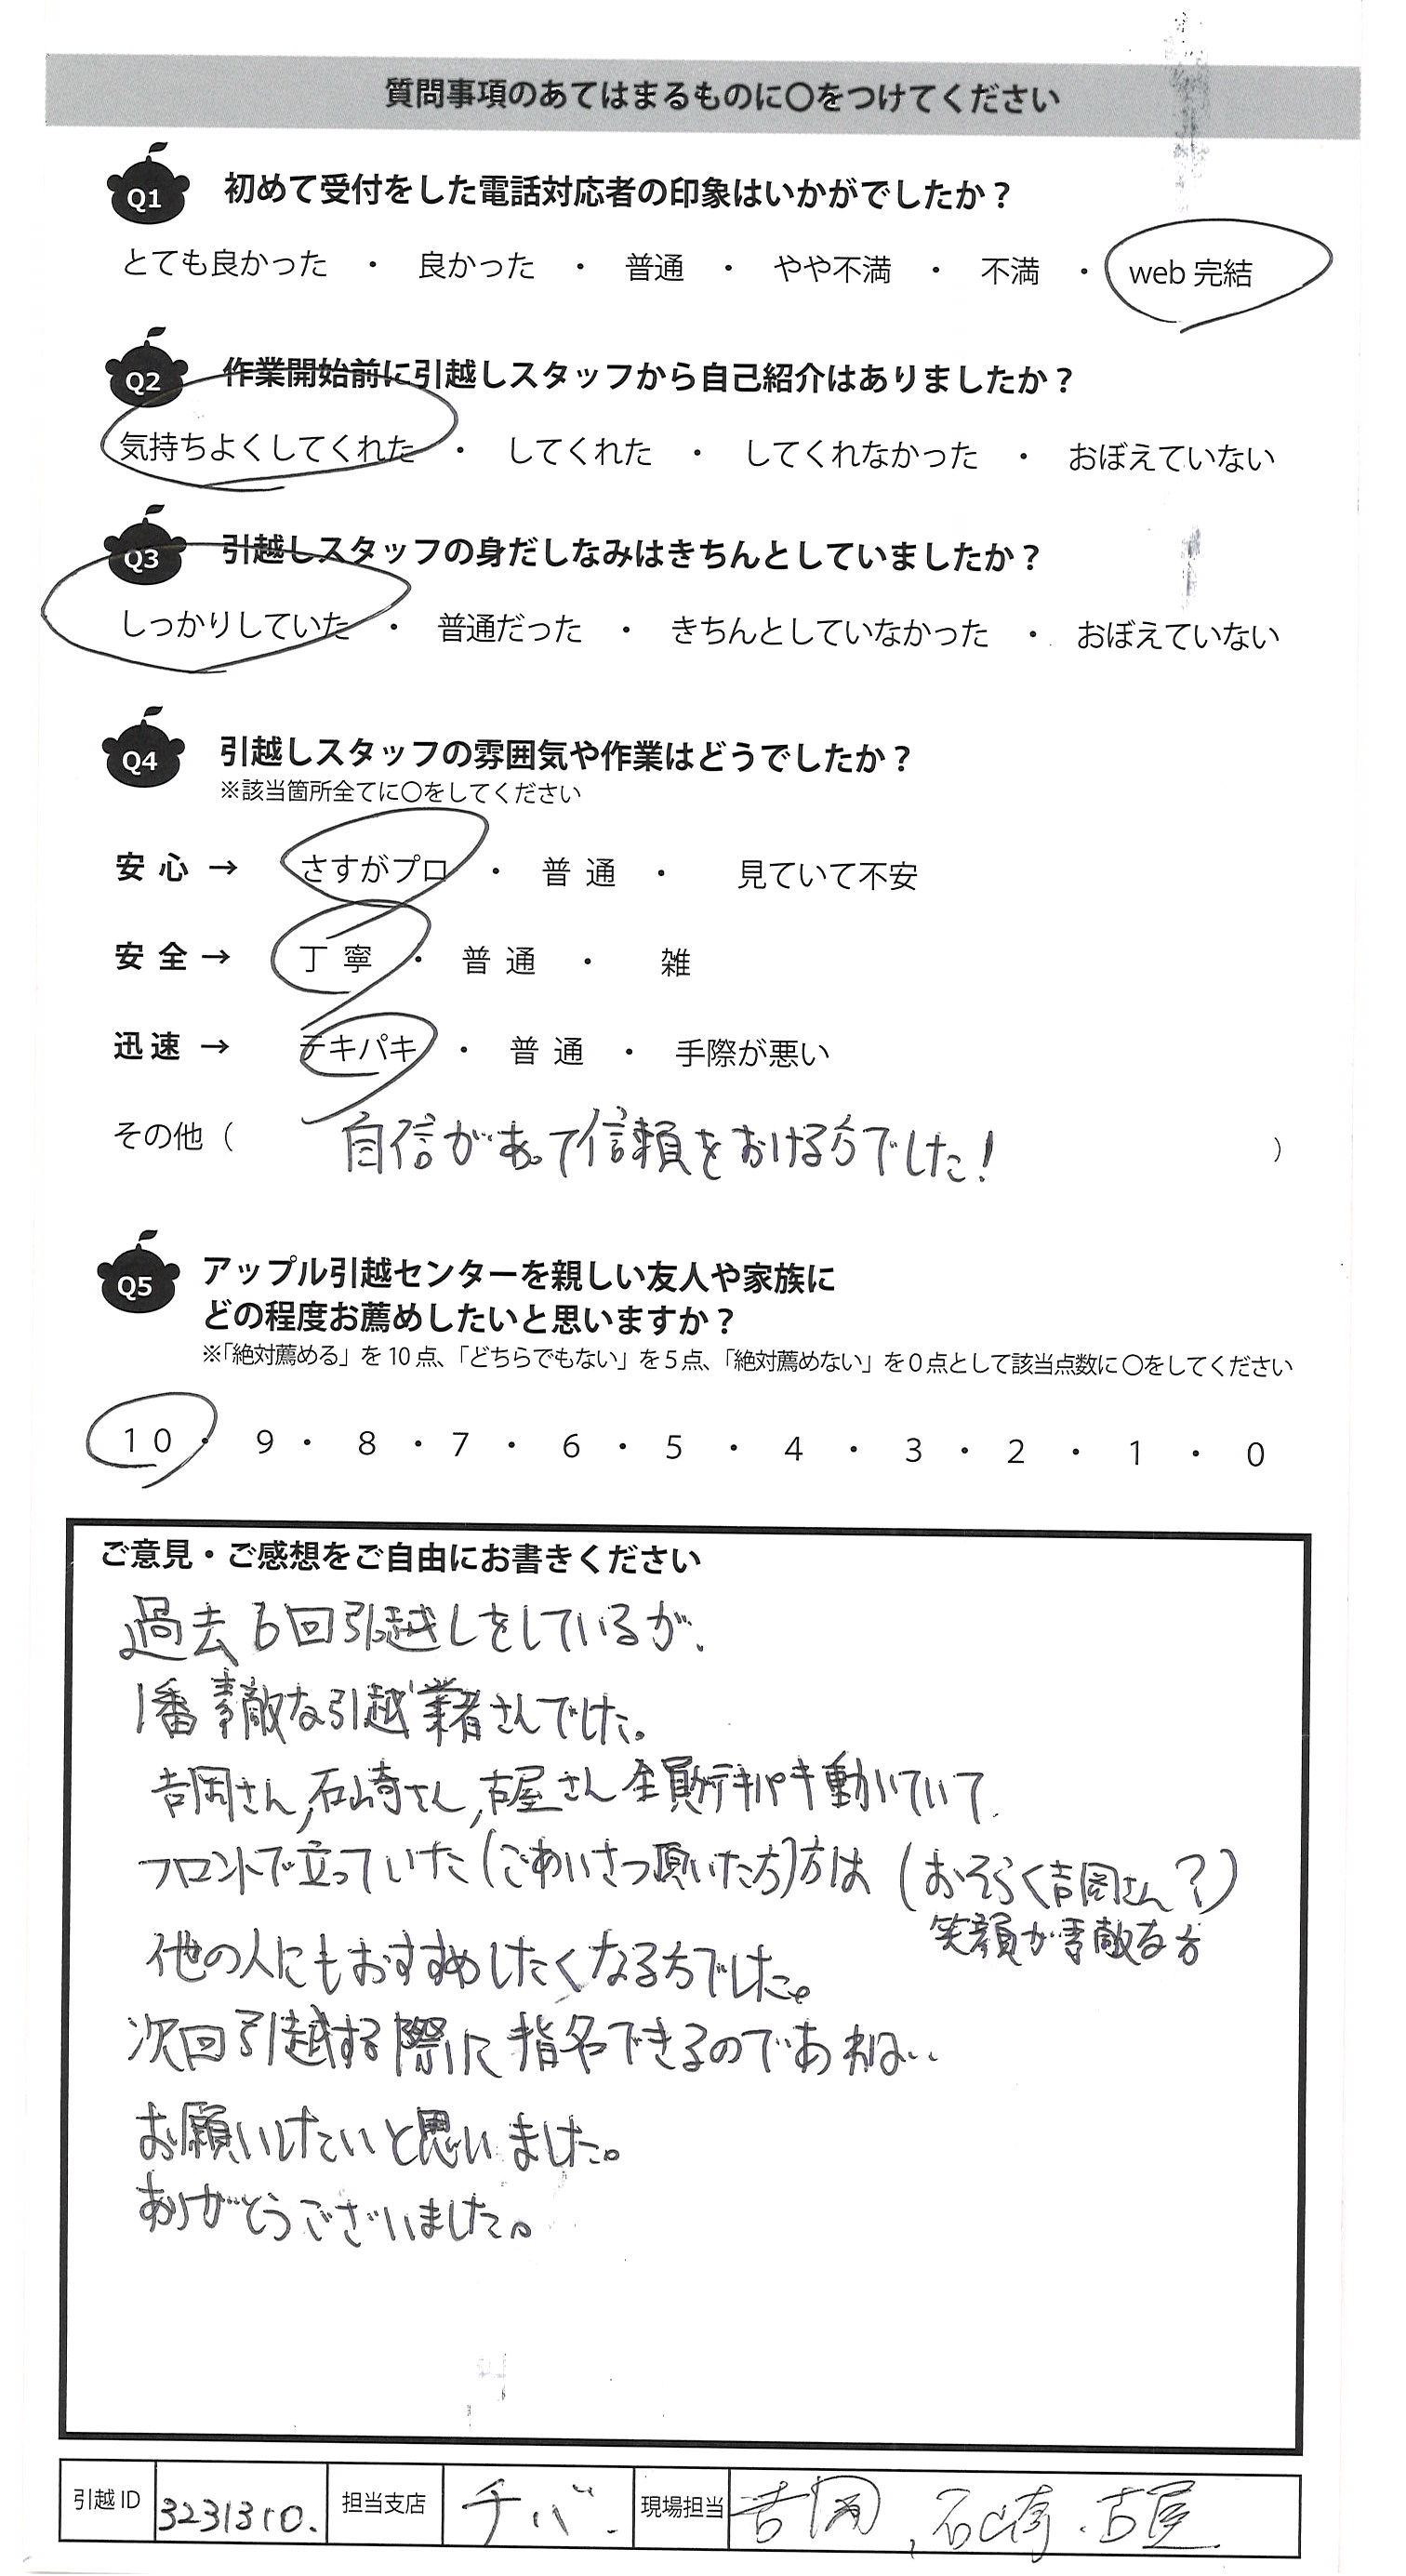 質問事項のあてはまるものに〇をつけてください
Q1 初めて受付をした電話対応者の印象はいかがでしたか？
とても良かった ・ 良かった ・ 普通 ・ やや不満 ・ 不満 ・ web 完結
Q2 作業開始前に引越しスタッフから自己紹介はありましたか？
気持ちよくしてくれた ・ してくれた ・ してくれなかった ・ おぼえていない
Q3 引越しスタッフの身だしなみはきちんとしていましたか？
しっかりしていた ・ 普通だった ・ きちんとしていなかった ・ おぼえていない
Q4 引越しスタッフの雰囲気や作業はどうでしたか？
※該当箇所全てに〇をしてください
安心 → さすがプロ ・ 普通 ・ 見ていて不安
安全 → 丁寧 ・ 普通 ・ 雑
迅速 → テキパキ ・ 普通 ・ 手際が悪い
その他（ 自信があって信頼をおける方でした! ）
Q5 アップル引越センターを親しい友人や家族に
どの程度お薦めしたいと思いますか？
※「絶対薦める」を10点、「どちらでもない」を5点、「絶対薦めない」を0点として該当点数に〇をしてください
10 ・ 9 ・ 8 ・ 7 ・ 6 ・ 5 ・ 4 ・ 3 ・ 2 ・ 1 ・ 0
ご意見・ご感想をご自由にお書きください
過去6回引越しをしているが、
1番素敵な引越業者さんでした。
吉岡さん,石崎さん,古屋さん全員テキパキ動いていて
フロントで立っていた(ごあいさつ頂いた方)方は (おそらく吉岡さん?)
笑顔が素敵な方
他の人にもおすすめしたくなる方でした。
次回引越する際に指名できるのであれば..
お願いしたいと思いました。
ありがとうございました。
引越ID 3231310. 担当支店 チバ. 現場担当 吉岡,石崎.古屋